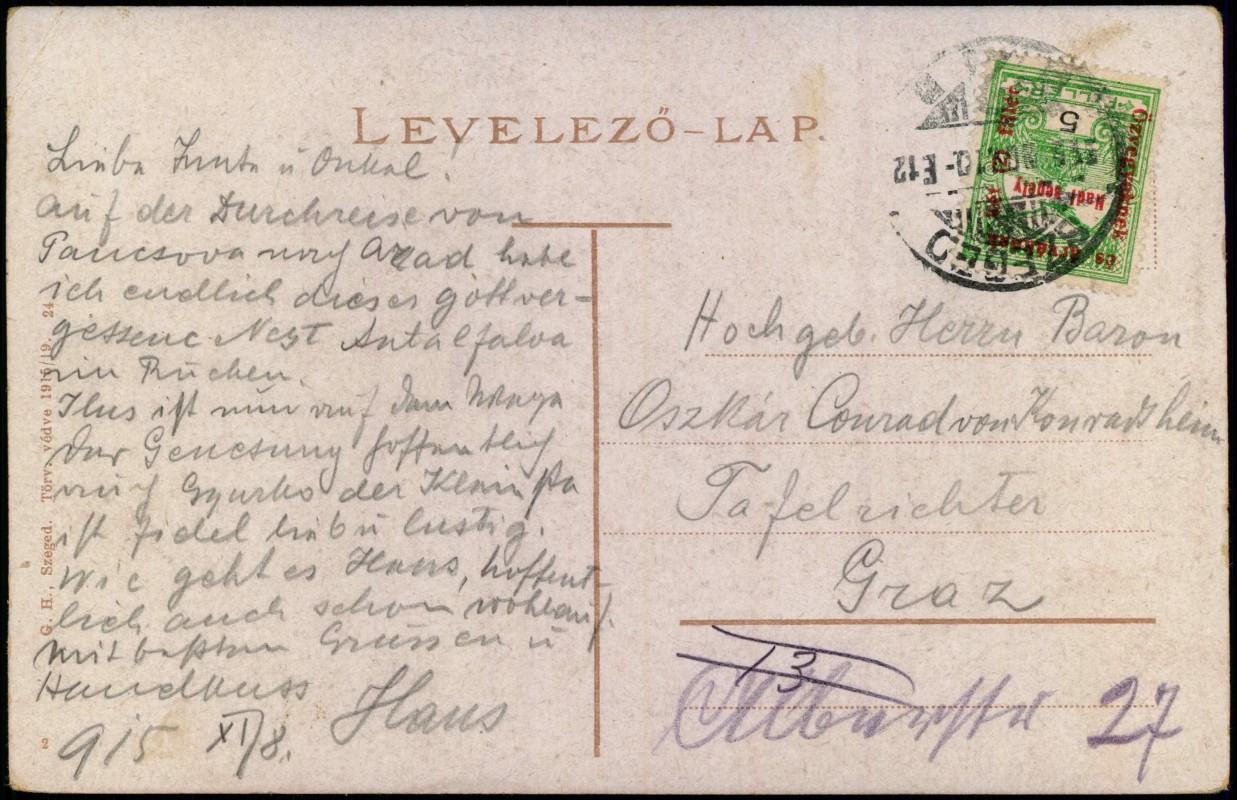 LEVELEZŐ-LAP.
Liebe Tante u Onkel!
auf der Durchreise von
Pancsova nach Arad habe
ich endlich dieses gottver-
gessene Nest Antalfalva
im Rücken.
Ilus ist nun auf dem Wege
der Genesung hoffentlich
auch Gyurko der Kleinste
ist fidel lieb u lustig.
Wie geht es Hans, hoffent-
lich auch schon wohlauf.
Mit besten Grüssen u
Handkuss Hans
915 XI/8.
G. H., Szeged. Törv. védve 1915/19. 24
2
FILLÉR
5
Özvegyeknek
és árváknak
két (2) fillér
Hadi segély
10-E12
Hochgeb. Herrn Baron
Oszkár Conrad von Konradsheim
Tafelrichter
Graz
13
27